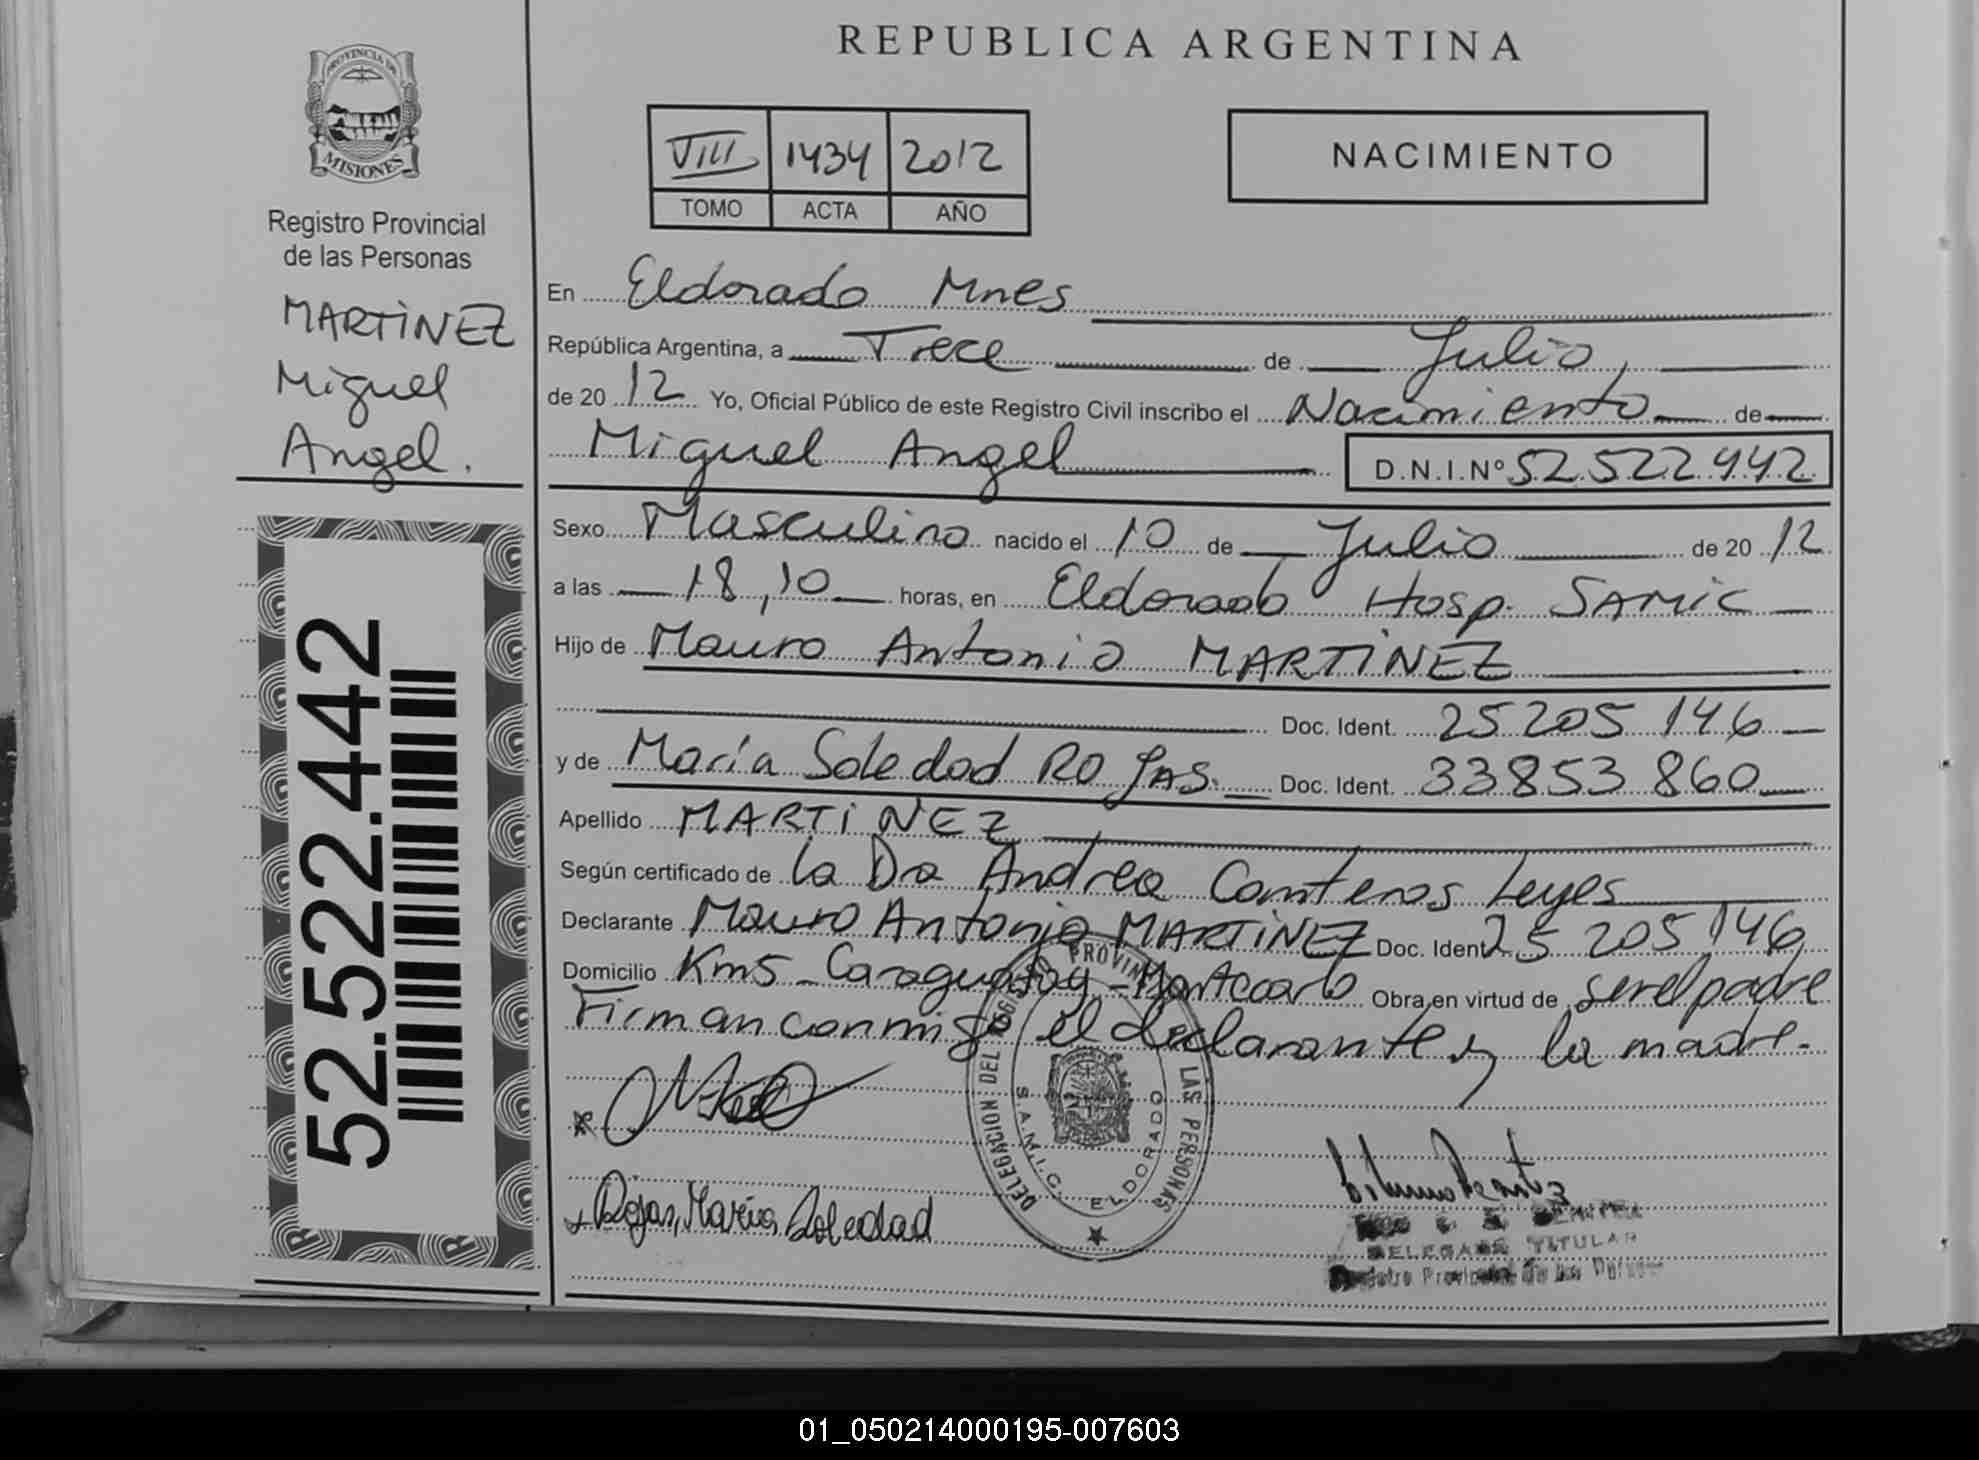 REPUBLICA ARGENTINA
PROVINCIA DE
MISIONES
Registro Provincial
de las Personas
MARTINEZ
Miguel
Angel.
52.522.442
VIII 1434 2012
TOMO ACTA AÑO
NACIMIENTO
En Eldorado Mnes
República Argentina, a Trece de Julio,
de 20 12 Yo, Oficial Público de este Registro Civil inscribo el Nacimiento de
Miguel Angel D.N.I.Nº 52.522.442
Sexo Masculino nacido el 10 de Julio de 20 12
a las 18,10 horas, en Eldorado Hosp. SAMIC
Hijo de Mauro Antonio MARTINEZ
Doc. Ident. 25 205 146
y de María Soledad ROJAS. Doc. Ident. 33853 860
Apellido MARTINEZ
Según certificado de la Dra Andrea Conteros Leyes
Declarante Mauro Antonio MARTINEZ Doc. Ident 25 205 146
Domicilio Km5 - Caraguatay - Montecarlo Obra en virtud de ser el padre
Firman conmigo el declarante y la madre.
DELEGACION DEL PROVIN LAS PERSONAS
S.A.M.I.C. ELDORADO
Rojas, María Soledad
DELEGADA TITULAR
Registro Provincial de las Personas
01_050214000195-007603